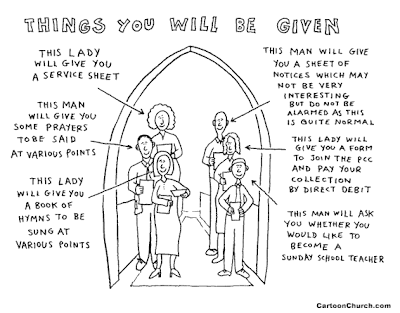 THINGS YOU WILL BE GIVEN
THIS LADY
WILL GIVE YOU
A SERVICE SHEET
THIS MAN
WILL GIVE YOU
SOME PRAYERS
TO BE SAID
AT VARIOUS POINTS
THIS LADY
WILL GIVE YOU
A BOOK OF
HYMNS TO BE
SUNG AT
VARIOUS POINTS
THIS MAN WILL GIVE
YOU A SHEET OF
NOTICES WHICH MAY
NOT BE VERY
INTERESTING
BUT DO NOT BE
ALARMED AS THIS
IS QUITE NORMAL
THIS LADY WILL
GIVE YOU A FORM
TO JOIN THE PCC
AND PAY YOUR
COLLECTION
BY DIRECT DEBIT
THIS MAN WILL ASK
YOU WHETHER YOU
WOULD LIKE TO
BECOME A
SUNDAY SCHOOL TEACHER
CartoonChurch.com